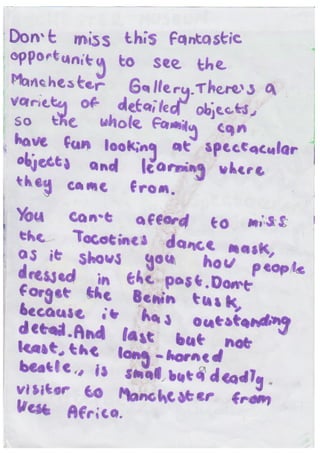 Don't miss this fantastic
opportunity to see the
Manchester Gallery. There's a
variety of detailed objects,
so the whole family can
have fun looking at spectacular
objects and learning where
they came from.
You can't afford to miss
the Tocotines dance mask,
as it shows you how people
dressed in the past. Don't
forget the Benin tusk,
because it has outstanding
detail. And last but not
least, the long-horned
beatle., is small, but a deadly.
visitor to Manchester from
West Africa.